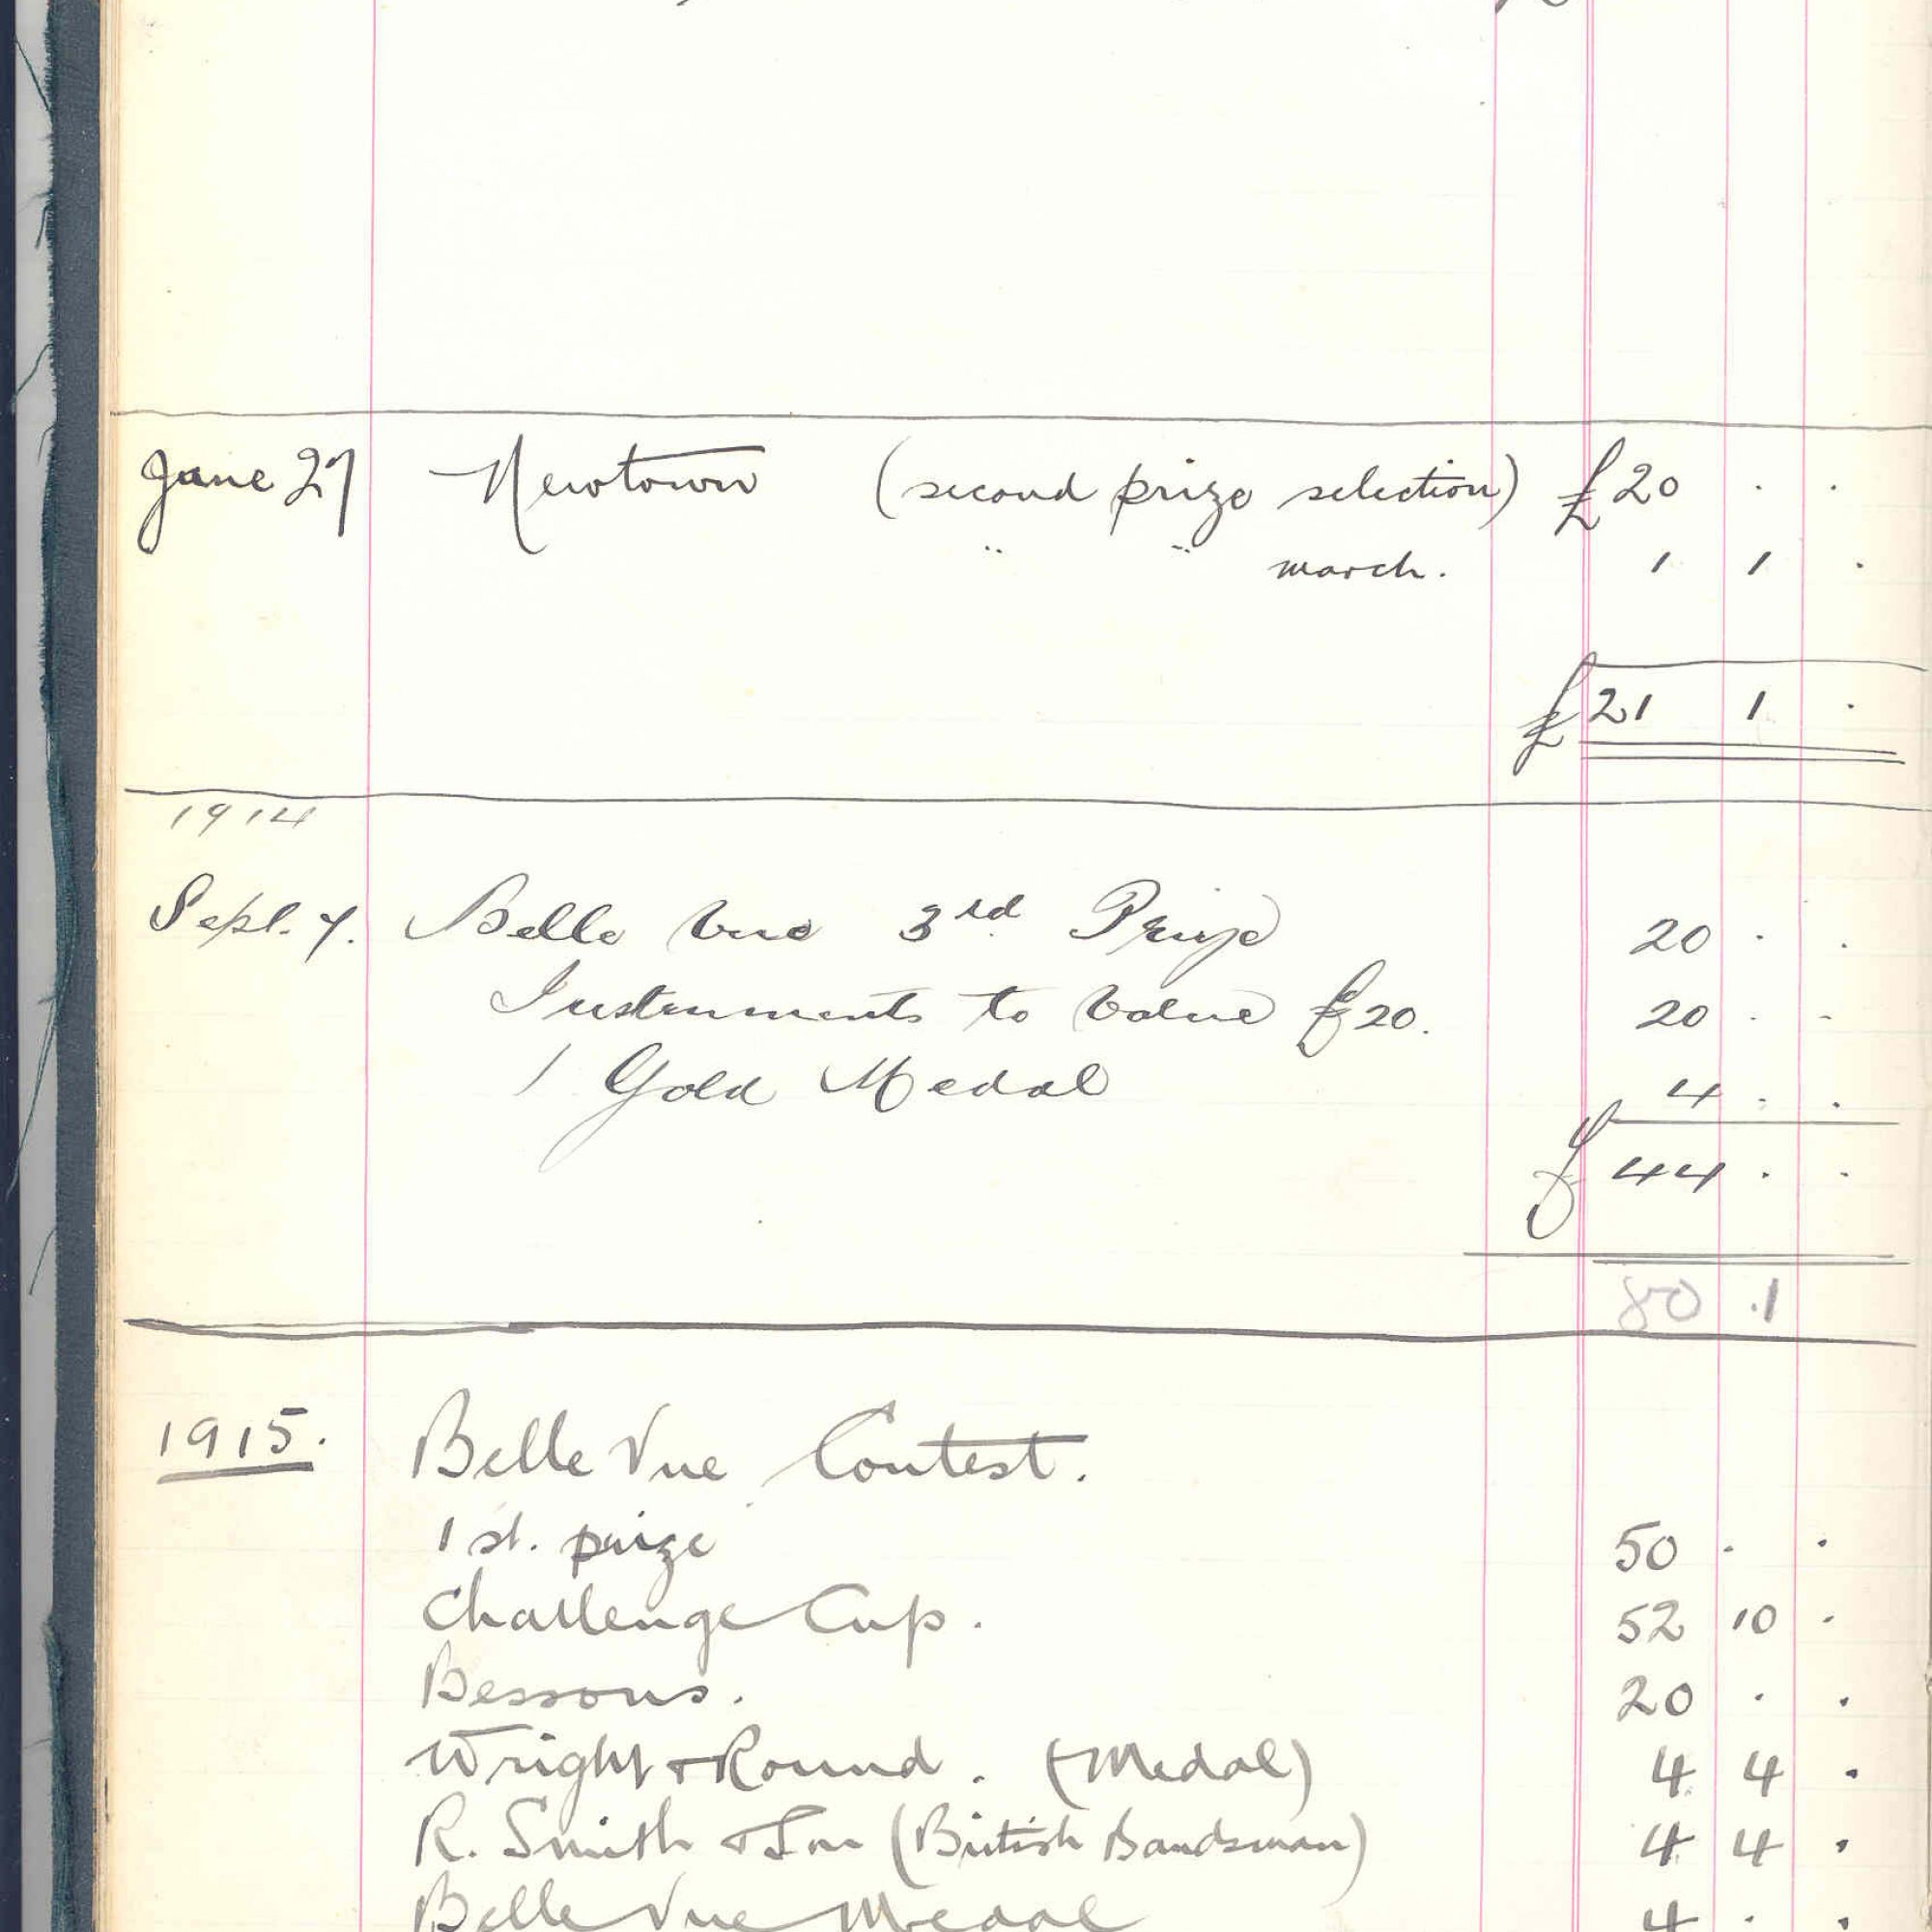 June 27 Newtown (second prize selection) £20 . .
" " march. 1 1 .
£21 1 .
1914
Sept. 7. Belle Vue 3rd Prize 20 . .
Instruments to Value £20. 20 . .
1 Gold Medal 4 . .
£44 . .
80 .1
1915. Belle Vue Contest.
1st. prize 50 . .
Challenge Cup. 52 10 .
Bessons. 20 . .
Wright & Round. (Medal) 4 4 .
R. Smith & Son (British Bandsman) 4 4 .
Belle Vue Medal 4 . .